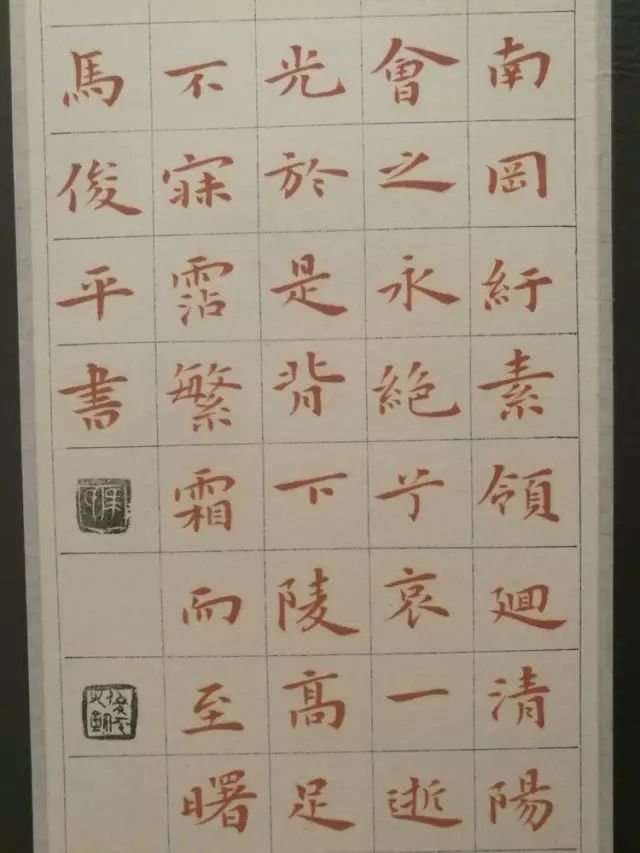 南岡紆素領廻清陽
會之永絕兮哀一逝
光於是背下陵高足
不寐霑繁霜而至曙
馬俊平書